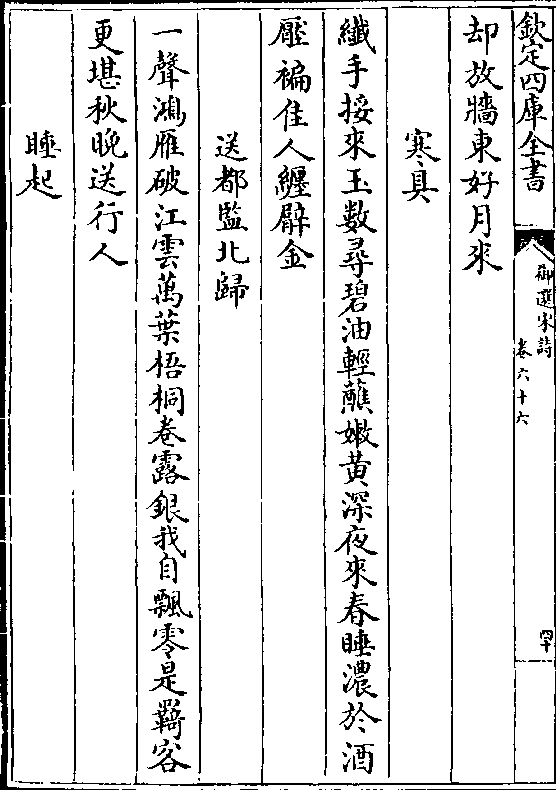 欽定四庫全書
御選宋詩
卷六十六
四十
却放牆東好月來
寒具
纖手接來玉數尋碧油輕蘸嫩黄深夜來春睡濃於酒
壓褊佳人纏臂金
送都監北歸
一聲鴻雁破江雲萬葉梧桐卷露銀我自飄零是羇客
更堪秋晚送行人
睡起